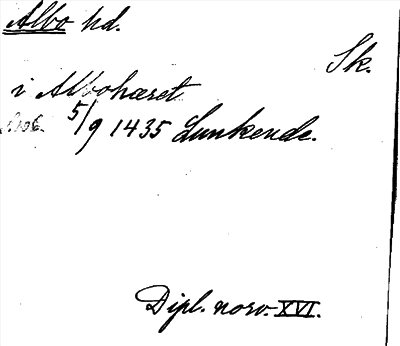 Albo hd.
Sk.
i Albohæret
5/9 1435 Lunkende.
Dipl. norv. XVI.